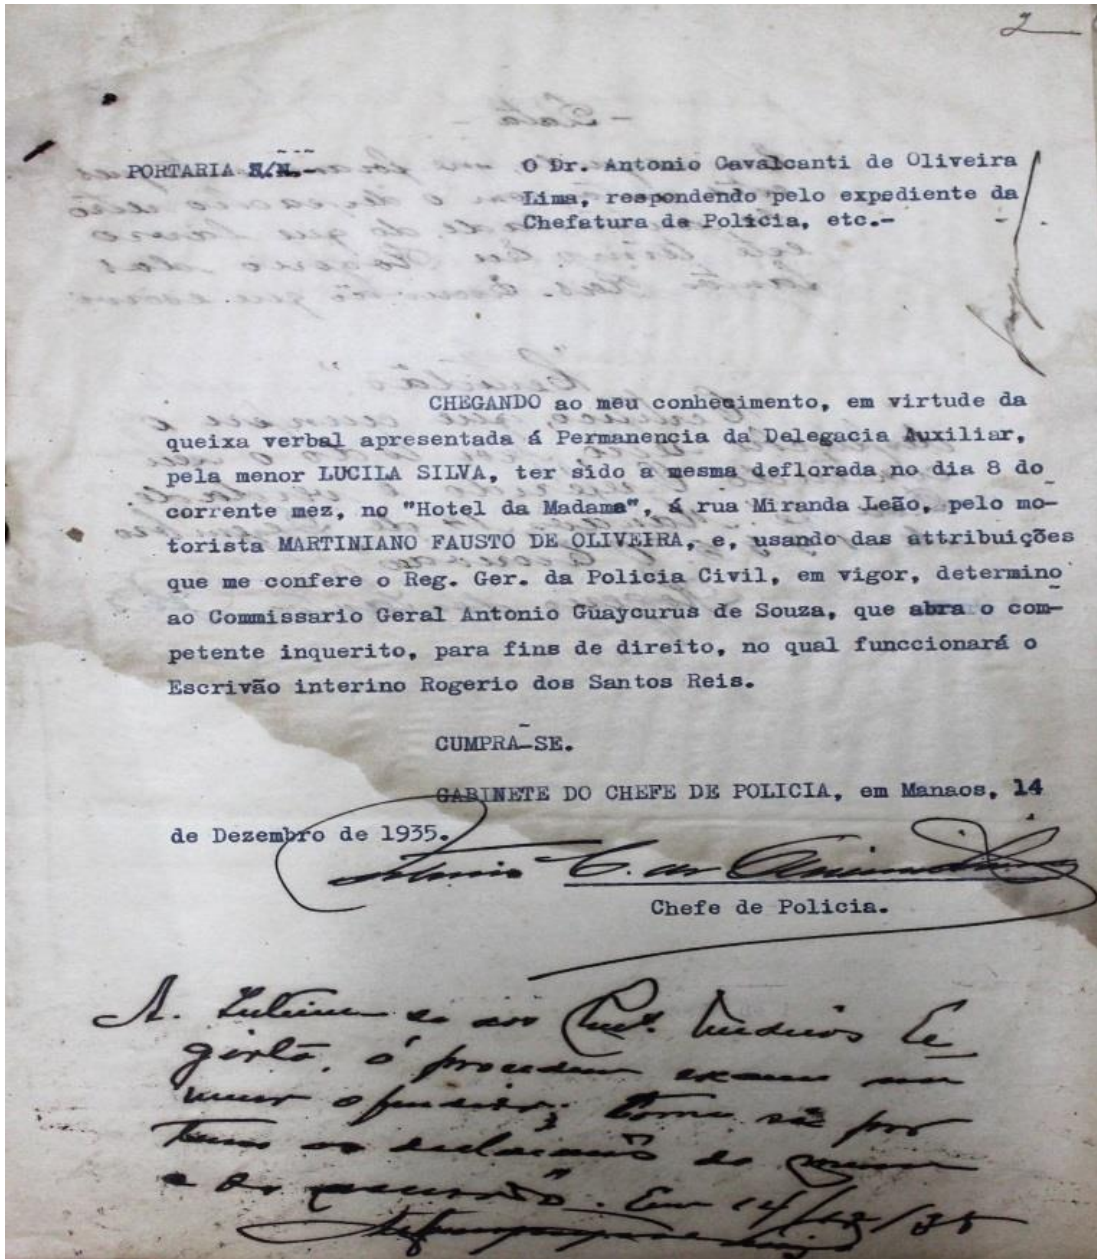 2
PORTARIA S/N.-
O Dr. Antonio Cavalcanti de Oliveira
Lima, respondendo pelo expediente da
Chefatura de Policia, etc.-
CHEGANDO ao meu conhecimento, em virtude da
queixa verbal apresentada á Permanencia da Delegacia Auxiliar,
pela menor LUCILA SILVA, ter sido a mesma deflorada no dia 8 do
corrente mez, no "Hotel da Madama", á rua Miranda Leão, pelo mo-
torista MARTINIANO FAUSTO DE OLIVEIRA, e, usando das attribuições
que me confere o Reg. Ger. da Policia Civil, em vigor, determino
ao Commissario Geral Antonio Guaycurus de Souza, que abra o com-
petente inquerito, para fins de direito, no qual funccionará o
Escrivão interino Rogerio dos Santos Reis.
CUMPRA-SE.
GABINETE DO CHEFE DE POLICIA, em Manaos, 14
de Dezembro de 1935.
Antonio C. de Oliveira Lima
Chefe de Policia.
A. Intime se aos Medicos Le
gistas, á procederem exame na
menor offendida; tome se por
termo as declarações da mesma
e do accusado. Em 14/12/35